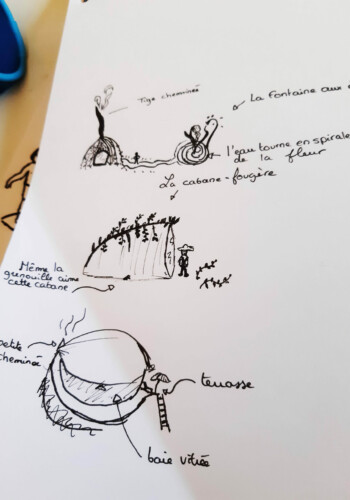 Tige cheminée
La Fontaine aux
l'eau tourne en spirale
de la fleur
La cabane-fougère
Même la
grenouille aime
cette cabane
petite
cheminée
terrasse
baie vitrée